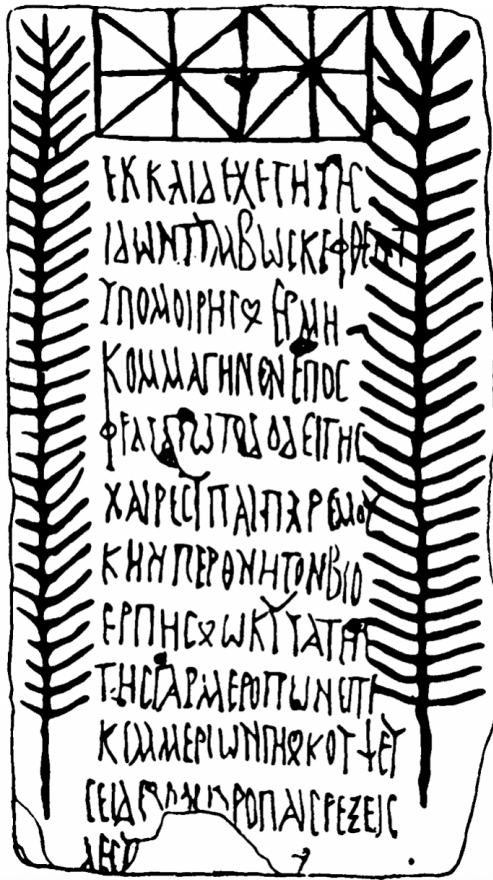 ΕΚΚΑΙΔΕΧΕΤΗΤΙϹ
ΙΔΩΝΤΥΜΒΩϹΚΕΦΘΕΝΤ
ΥΠΟΜΟΙΡΗϹ ΕΡΜΗ
ΚΟΜΜΑΓΗΝΟΝΕΠΟϹ
ΦΡΑϹΑΤΩΤΟΔΟΔΕΙΤΗϹ
ΧΑΙΡΕϹΥΠΑΙΠΑΡΕΜΟΥ
ΚΗΝΠΕΡΘΝΗΤΟΝΒΙΟ
ΕΡΠΗϹ ΩΚΥΤΑΤΗ
ΤΗϹΓΑΡΜΕΡΟΠΩΝΕΠΙ
ΚΙΜΜΕΡΙΩΝΓΗ ΚΟΥΨΕΥ
ϹΕΙΑ ΡΟΠΑΙϹΡΕΞΕΙϹ
ΔΕϹΥ